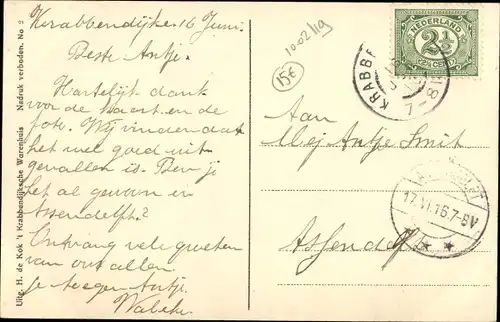 Krabbendijke 16 Juni.
Beste Antje.
Hartelijk dank
voor de kaart en de
foto. Wij vinden dat
het wel goed uit-
gevallen is. Ben je
het al gewoon in
Assendelft?
Ontvang vele groeten
van ons allen.
je
Antje.
Uitg. H. de Kok 't Krabbendijksche Warenhuis Nadruk verboden. No 2
1002/19
15€
NEDERLAND
2½
KRABBE
Aan
Mej Antje Smit
Assendelft
17.VI.16.7-8V